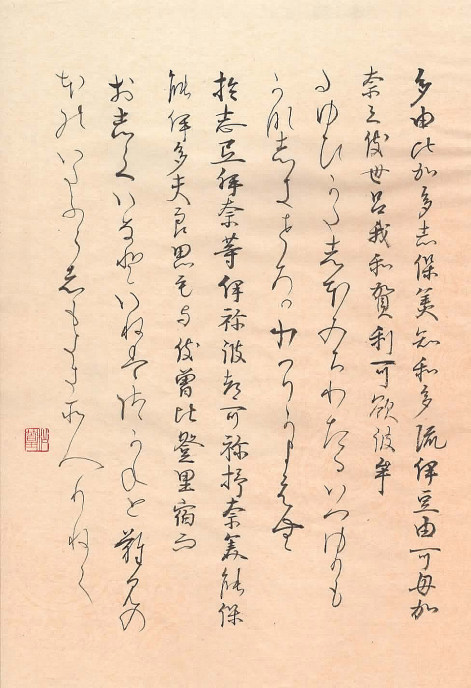 多由比加多志保美知和多流伊豆由可母加
奈之伎世呂我和賀利可欲波牟
たゆひかたしほみちわたるいつゆかも
かなしきせろかわかりかよはむ
於志弖伊奈等伊祢波都可祢杼奈美能保
能伊多夫良思毛与伎曽比登里宿而
おしていなといねはつかねと難見の
ほのいたふらしもよきそ人りねて